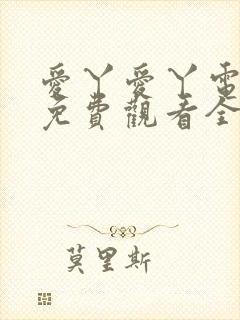 愛丫愛丫電
免費觀看全
莫里斯